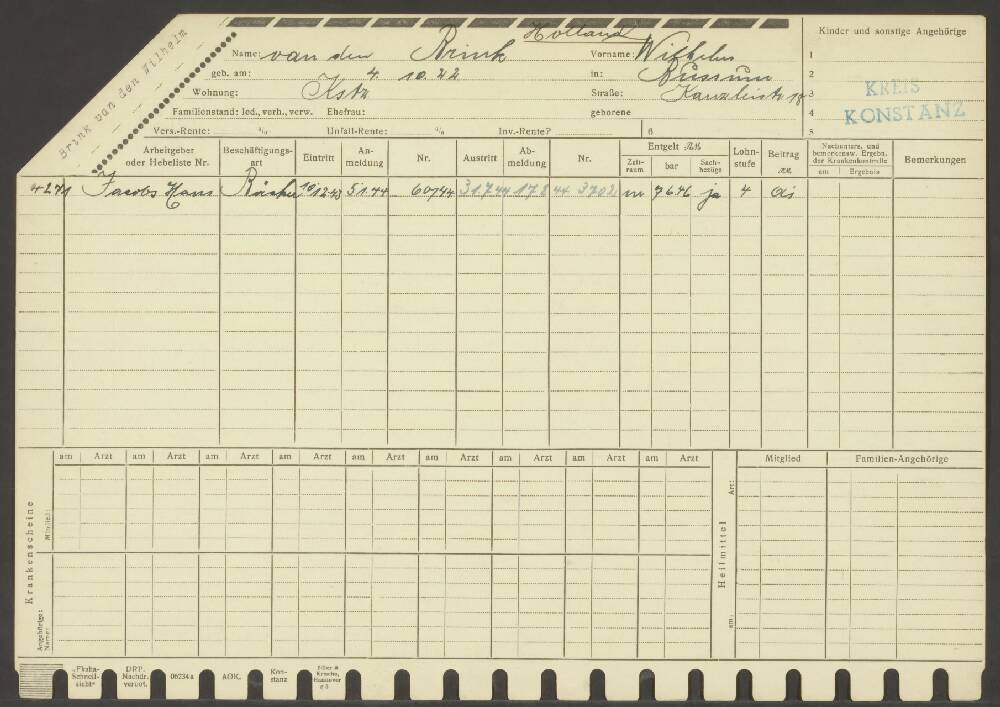 Brink van den Wilhelm
Holland
Name: van den Brink Vorname: Wilhelm
geb. am: 4. 10. 22 in: Bussum
Wohnung: Kstz Straße: Kanzleistr 18
Familienstand: led., verh., verw. Ehefrau: geborene
Vers.-Rente: % Unfall-Rente: % Inv.-Rente?
Kinder und sonstige Angehörige
1
2
3
4
5
6
KREIS
KONSTANZ
Arbeitgeber oder Hebeliste Nr. Beschäftigungsart Eintritt Anmeldung Nr. Austritt Abmeldung Nr. Entgelt RM Lohnstufe Beitrag RM Bemerkungen
Zeitraum bar Sachbezüge
am Ergebnis
4271 Jacobs Hans Bäcker 10.12.43 5.1.44 60744 31.7.44 17.8 44 ja 4
am Arzt am Arzt am Arzt am Arzt am Arzt am Arzt am Arzt am Arzt am Arzt
Mitglied Familien-Angehörige
Krankenscheine
Mitglied:
Angehörige: Name:
Heilmittel
Art:
am
DRP. Nachdr. verbot.
06234a
AOK.
Konstanz